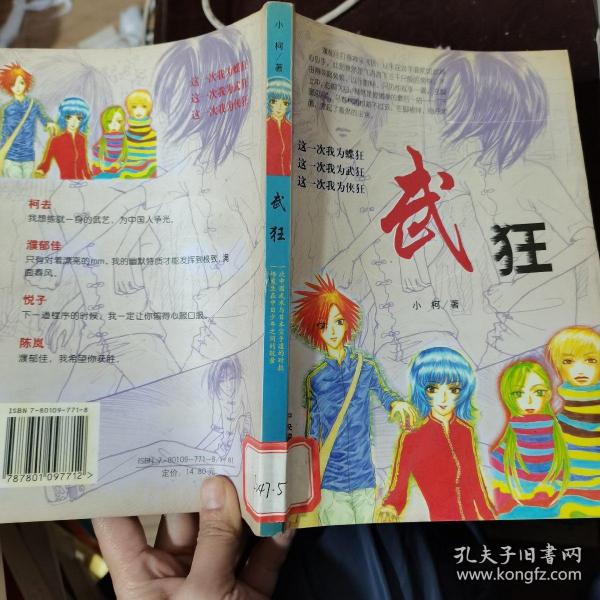 这一次我为蝶狂
这一次我为武狂
这一次我为侠狂
柯去
我想练就一身的武艺，为中国人争光。
濮郁佳
只有对着漂亮的mm，我的幽默特质才能发挥到极致，满
面春风。
悦子
下一道程序的时候，我一定让你输得心服口服。
陈岚
濮郁佳，我希望你获胜。
ISBN 7-80109-771-8
787801 097712 >
ISBN 7-80109-771-8/I·81
定价：14.80元
小柯 著
武狂
一次中国武术与日本空手道的对抗
一场发生在中日少年之间的较量
47·5
这一次我为蝶狂
这一次我为武狂
这一次我为侠狂
武狂
小柯 著
孔夫子旧书网
www.kongfz.com